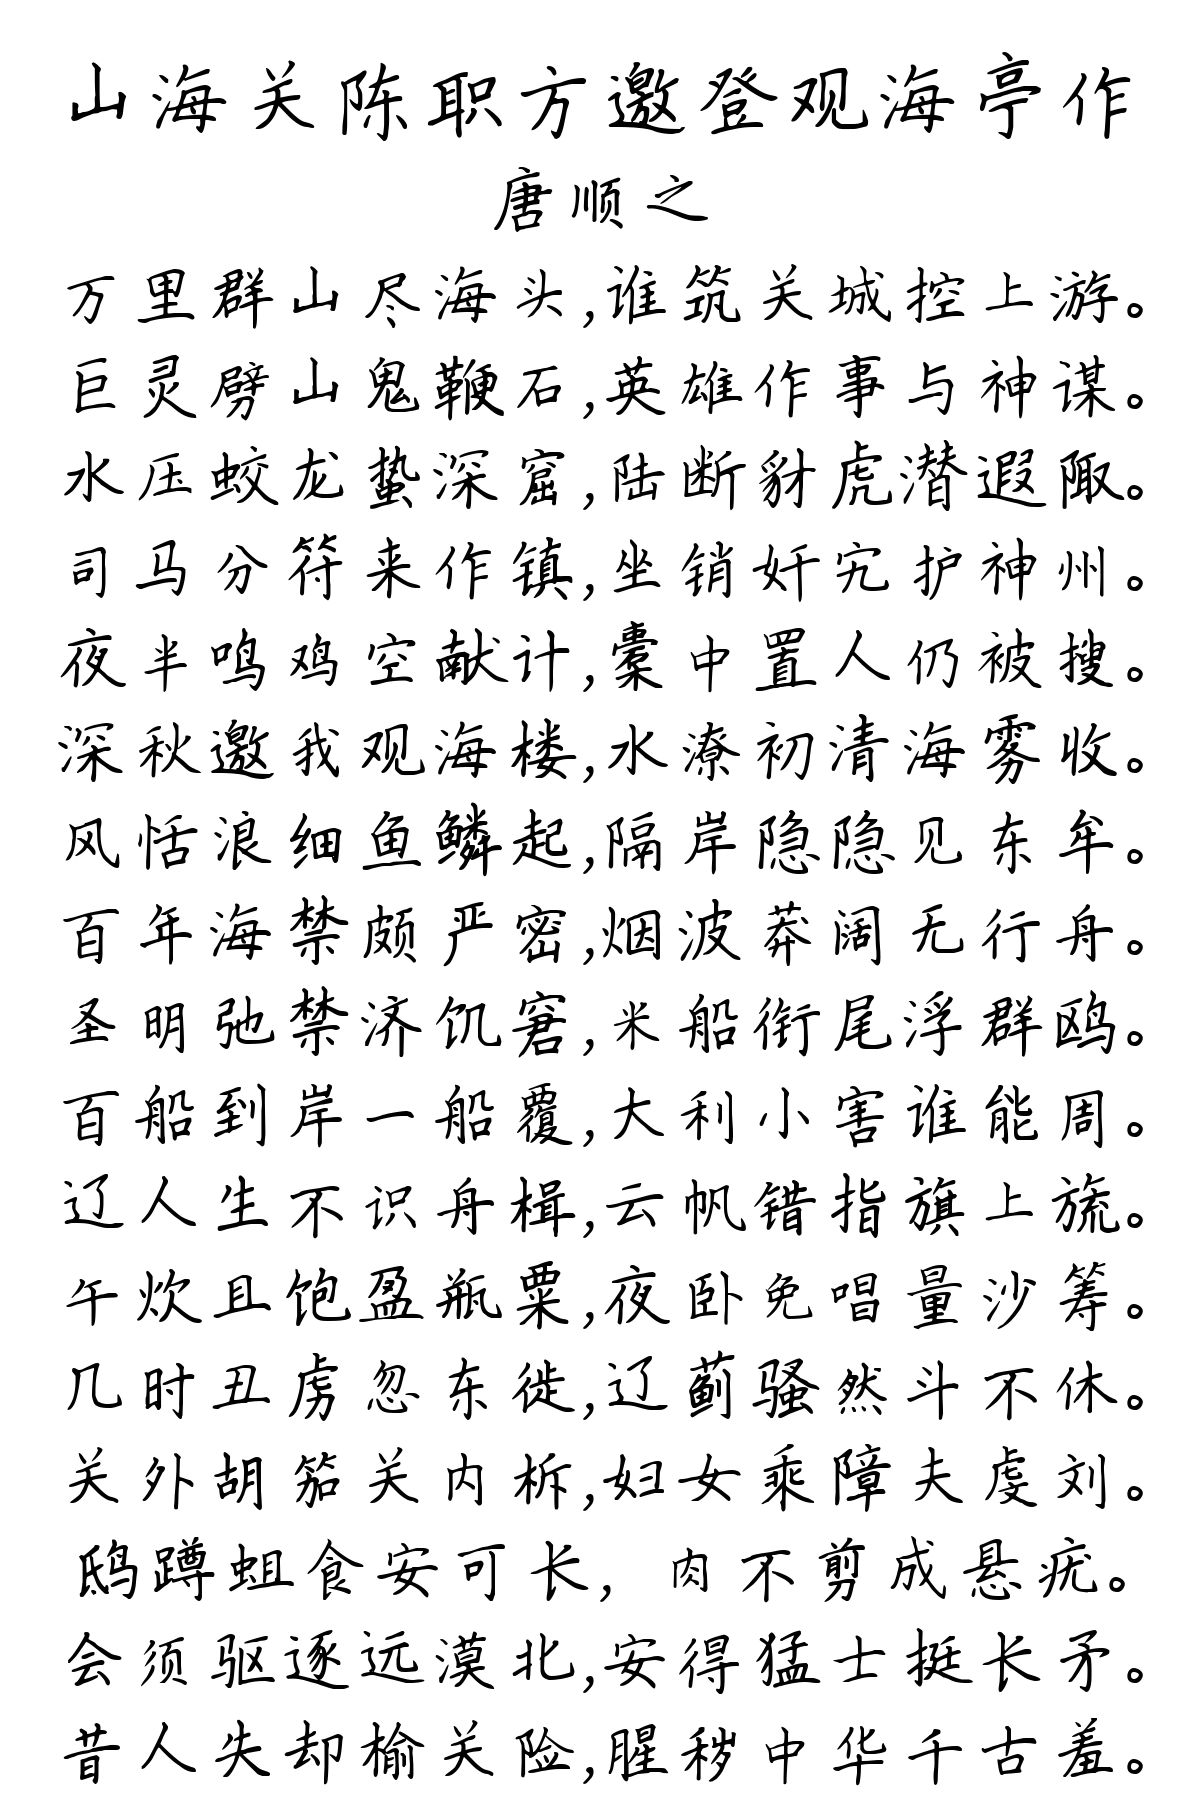 山海关陈职方邀登观海亭作
唐顺之
万里群山尽海头,谁筑关城控上游。
巨灵劈山鬼鞭石,英雄作事与神谋。
水压蛟龙蛰深窟,陆断豺虎潜遐陬。
司马分符来作镇,坐销奸宄护神州。
夜半鸣鸡空献计,橐中置人仍被搜。
深秋邀我观海楼,水潦初清海雾收。
风恬浪细鱼鳞起,隔岸隐隐见东牟。
百年海禁颇严密,烟波莽阔无行舟。
圣明弛禁济饥窘,米船衔尾浮群鸥。
百船到岸一船覆,大利小害谁能周。
辽人生不识舟楫,云帆错指旗上旒。
午炊且饱盈瓶粟,夜卧免唱量沙筹。
几时丑虏忽东徙,辽蓟骚然斗不休。
关外胡笳关内柝,妇女乘障夫虔刘。
鸱蹲蛆食安可长,肉不剪成悬疣。
会须驱逐远漠北,安得猛士挺长矛。
昔人失却榆关险,腥秽中华千古羞。